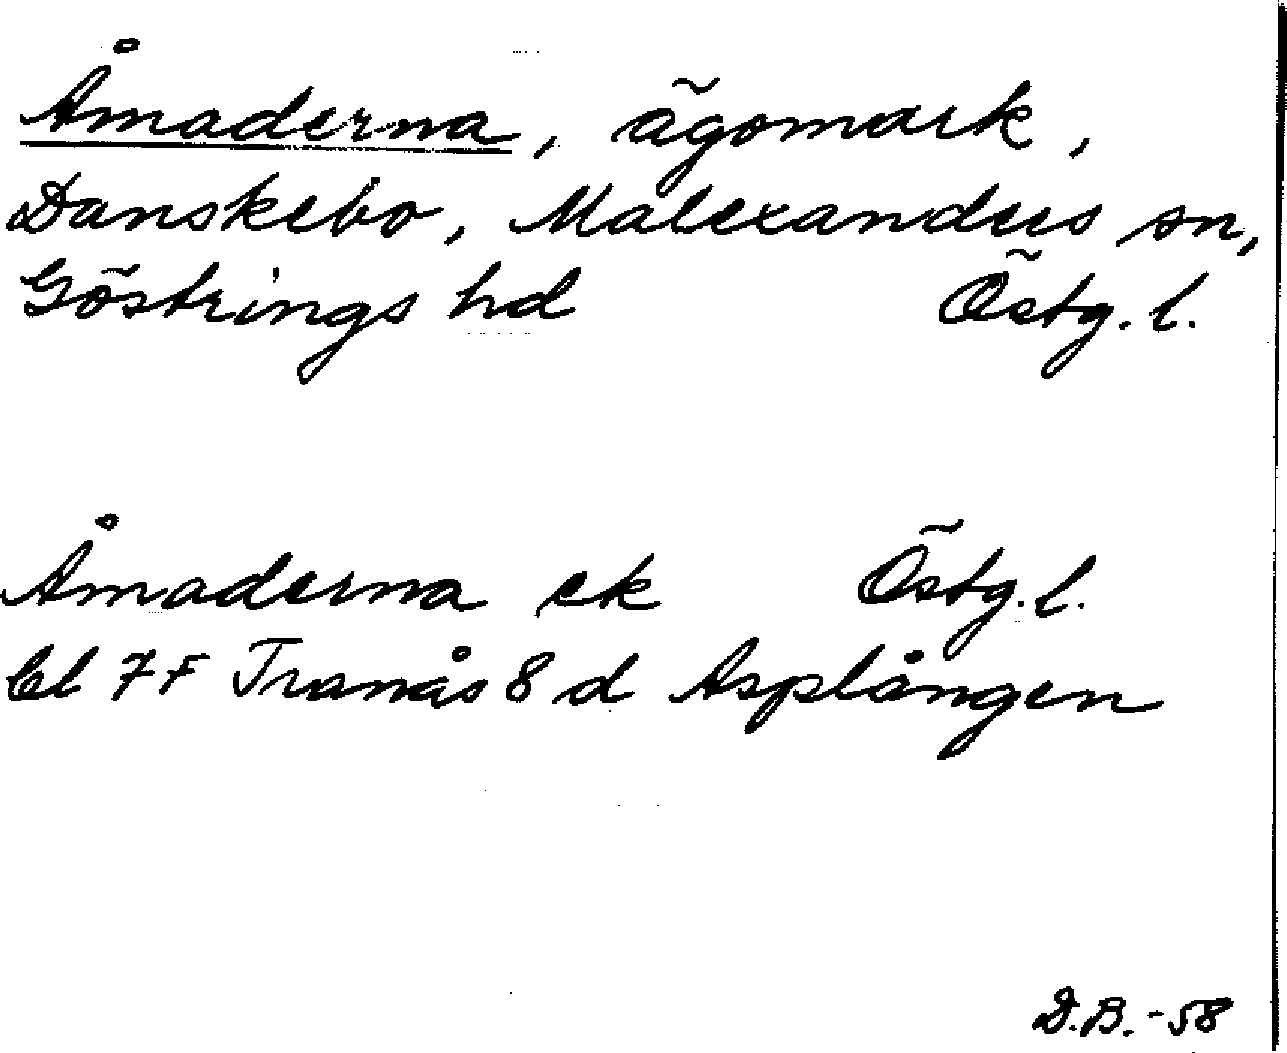 Åmaderna, ägomark,
Danskebo, Malexanders sn,
Göstrings hd Östg. l.
Åmaderna ek Östg. l.
bl 7F Tranås 8 d Asplången
D.B. -58